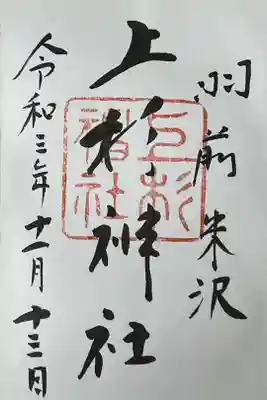 羽前 米沢
上杉神社
上杉神社
令和三年十一月十三日